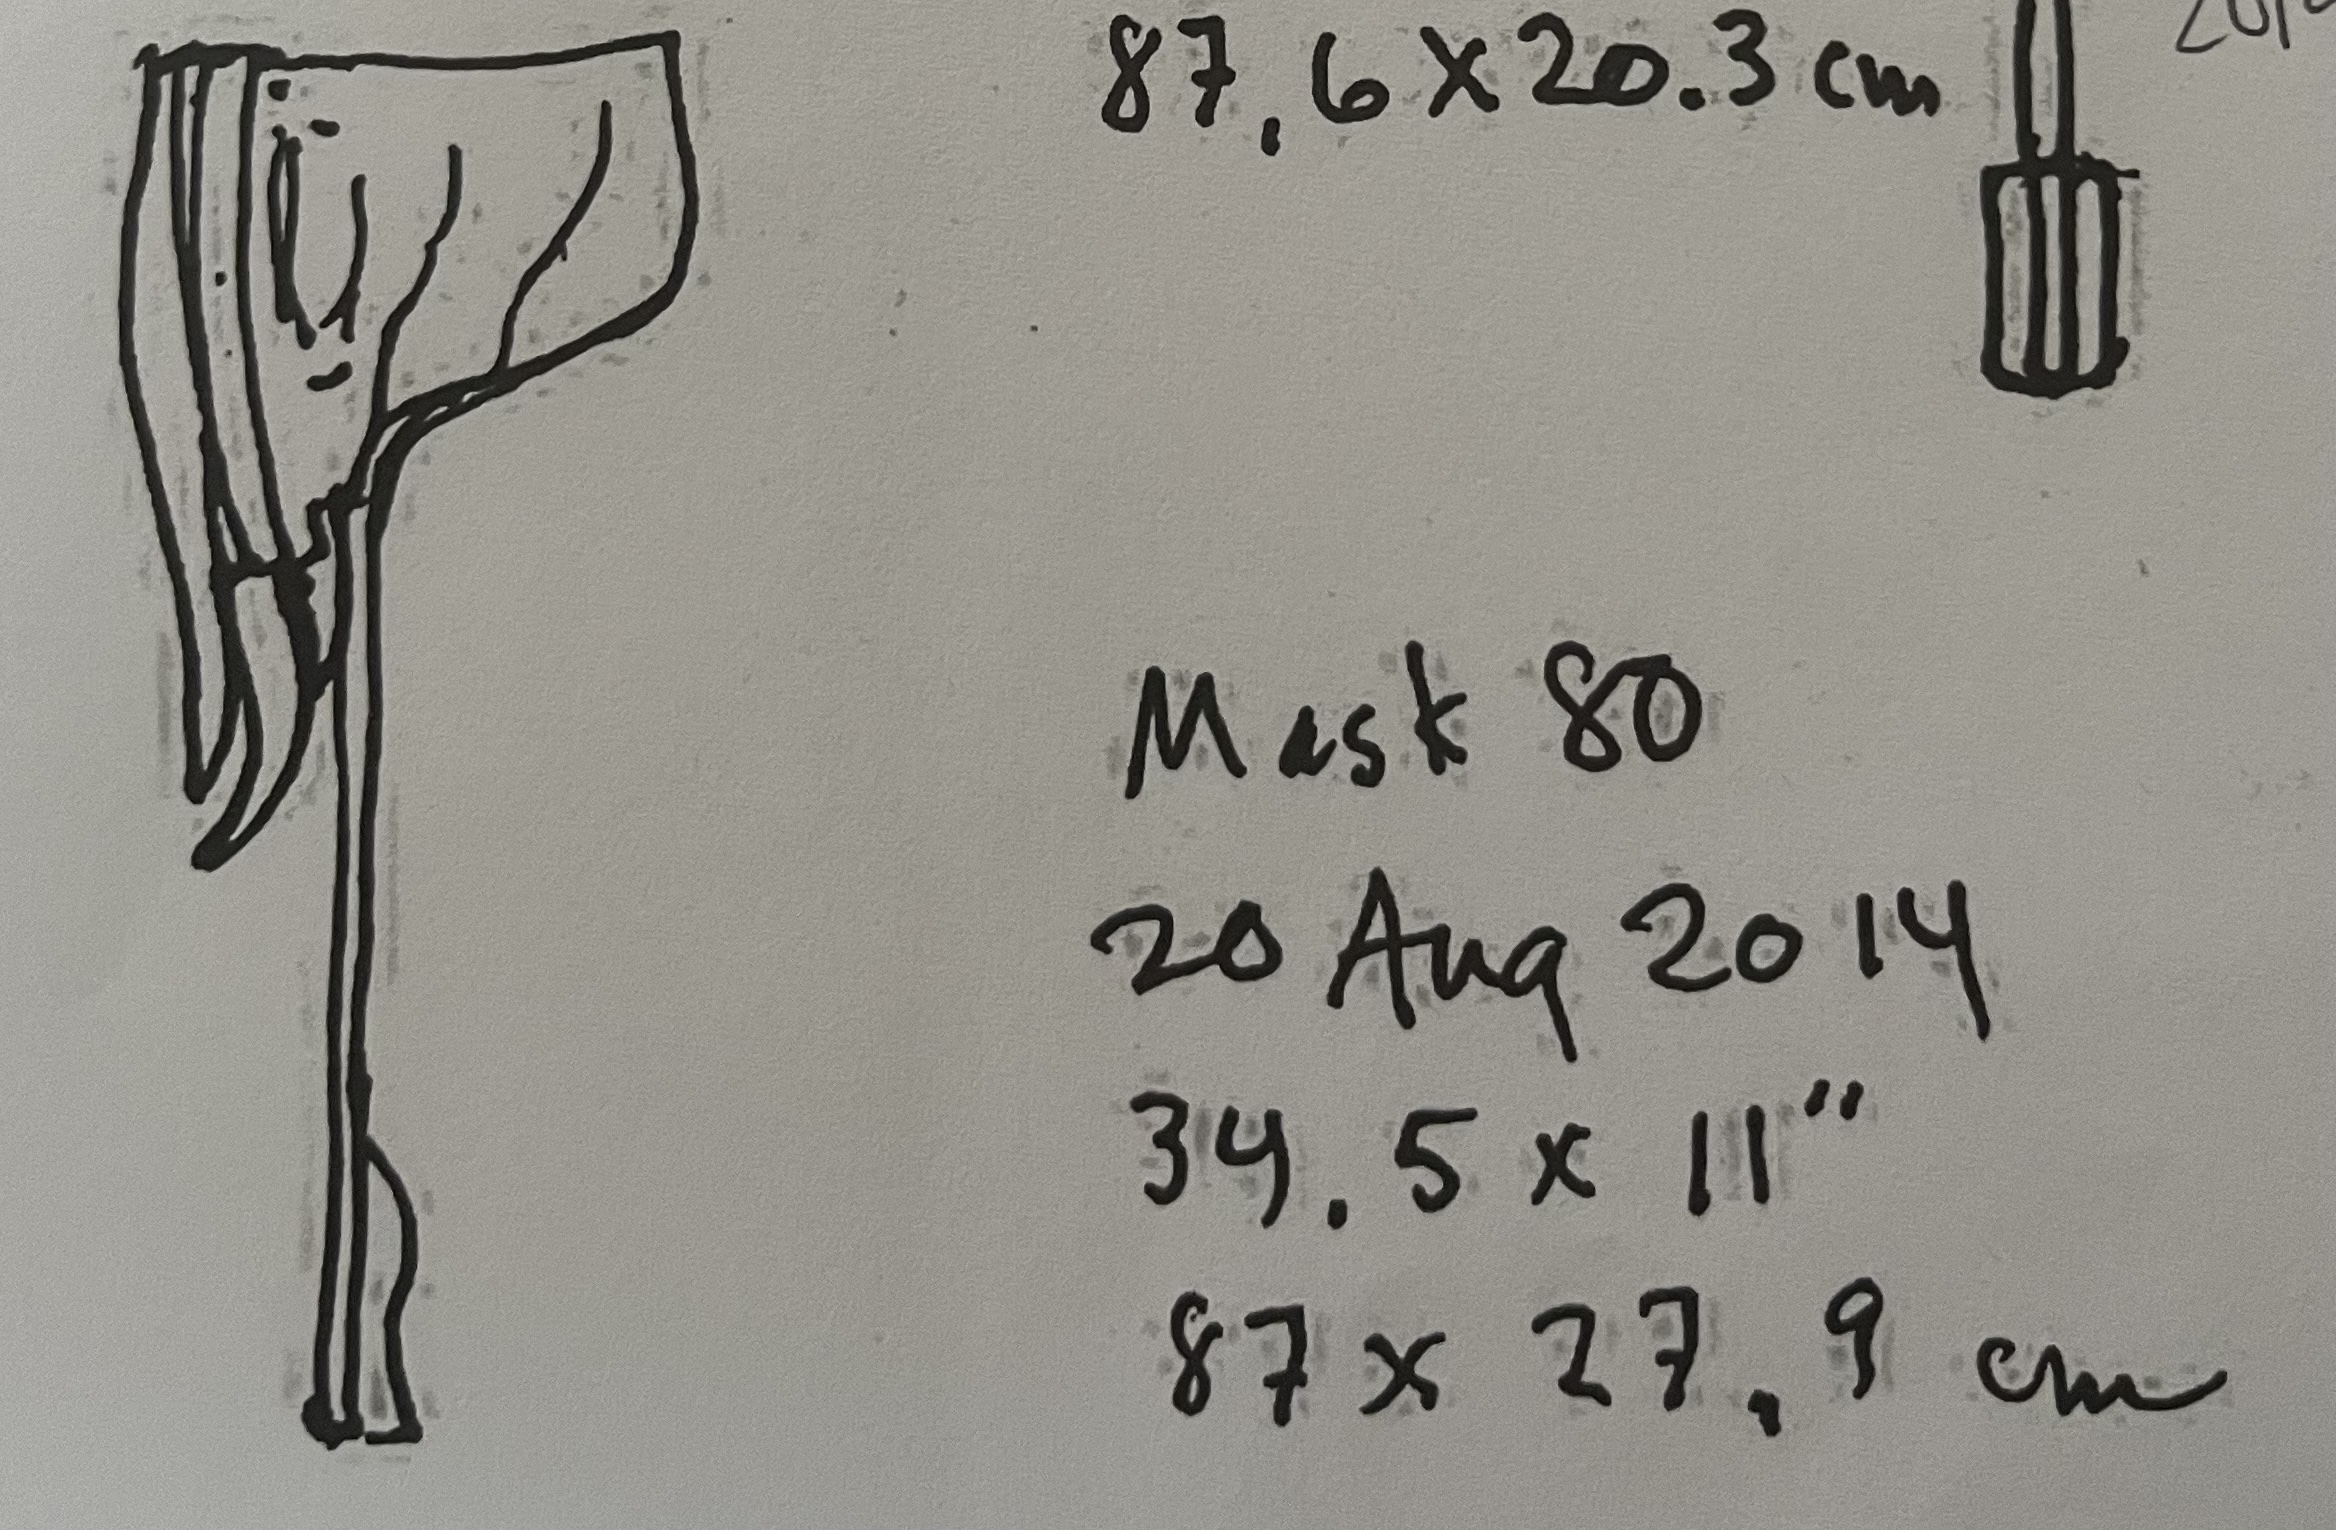 87.6 x 20.3 cm
Mask 80
20 Aug 2014
34.5 x 11"
87 x 27.9 cm